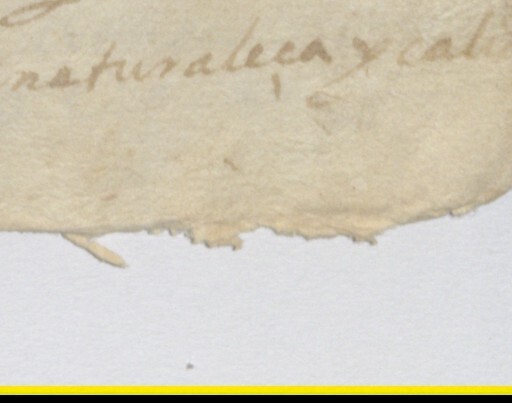 naturaleça y cali